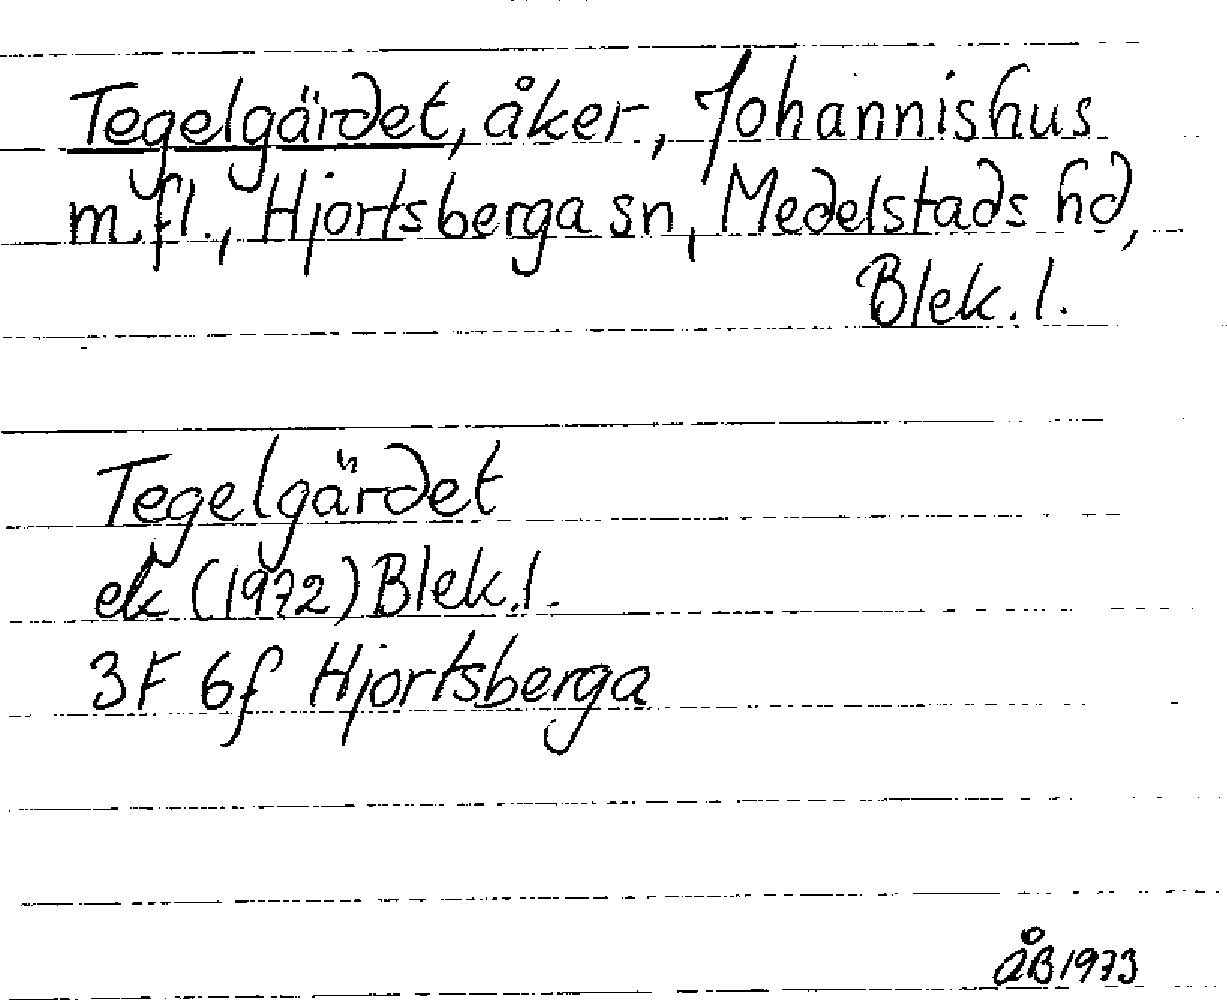 Tegelgärdet, åker, Johannishus
m.fl., Hjortsberga sn, Medelstads hd,
Blek. l.
Tegelgärdet
ek (1972) Blek. l.
3F 6f Hjortsberga
ÅB 1973